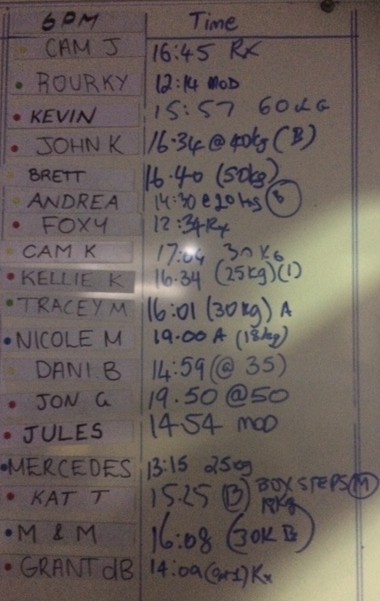 6PM Time
CAM J 16:45 RX
ROURKY 12:14 MOD
KEVIN 15:57 60KG
JOHN K 16.34 @ 40kg (B)
BRETT 16.40 (50kg)
ANDREA 14:30 @ 20kgs B
FOXY 12:34 Rx
CAM K 17:04 30KG
KELLIE K 16.34 (25kg) (1)
TRACEY M 16:01 (30kg) A
NICOLE M 19.00 A (18kg)
DANI B 14:59 (@ 35)
JON G 19.50 @50
JULES 14.54 MOD
MERCEDES 13:15
KAT T 15.25 (B) BOX STEPS (M)
M & M 16:08 (30K B)
GRANT dB 14:09 Rx